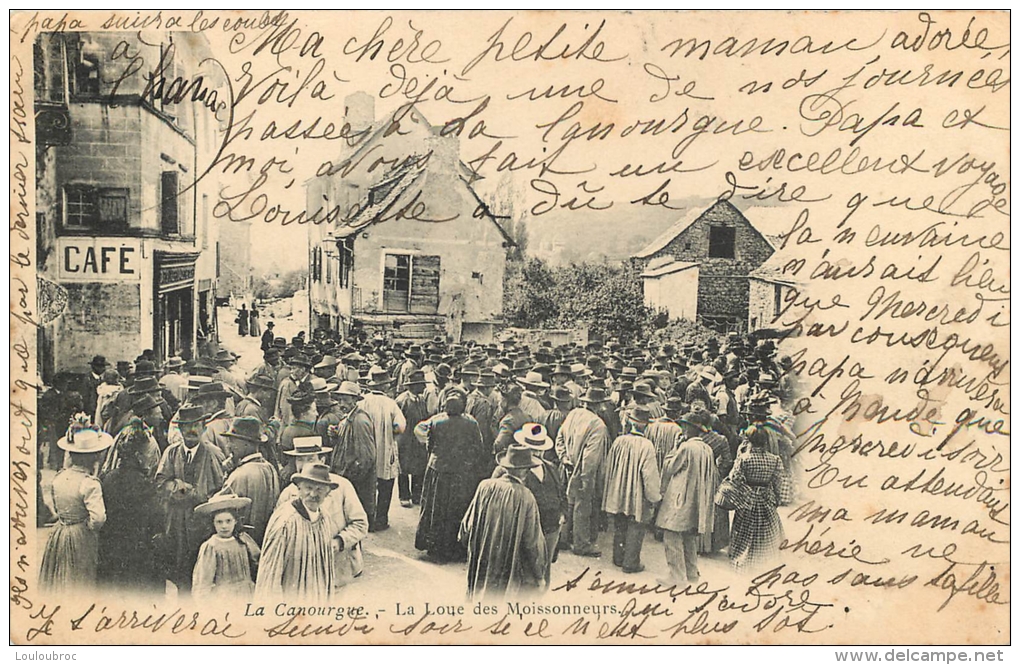 papa suivra les coules
à
Chanac
Ma chère petite maman adorée,
Voilà déjà une de nos journées
passée à La Canourgue. Papa et
moi avons fait un excellent voyage
Louisette a dû te dire que
la neuvaine
n'aurait lieu
que Mercredi
par conséquent
papa n'arrivera
à Mende que
mercredi soir.
On attendait
ma maman
chérie ne
t'ennuie pas sans ta fille
qui t'adore.
Je t'arriverai lundi soir si ce n'est plus tôt.
n'auront que par le dernier train
CAFÉ
La Canourgue. - La Loue des Moissonneurs.
© Louloubroc
http://www.delcampe.net